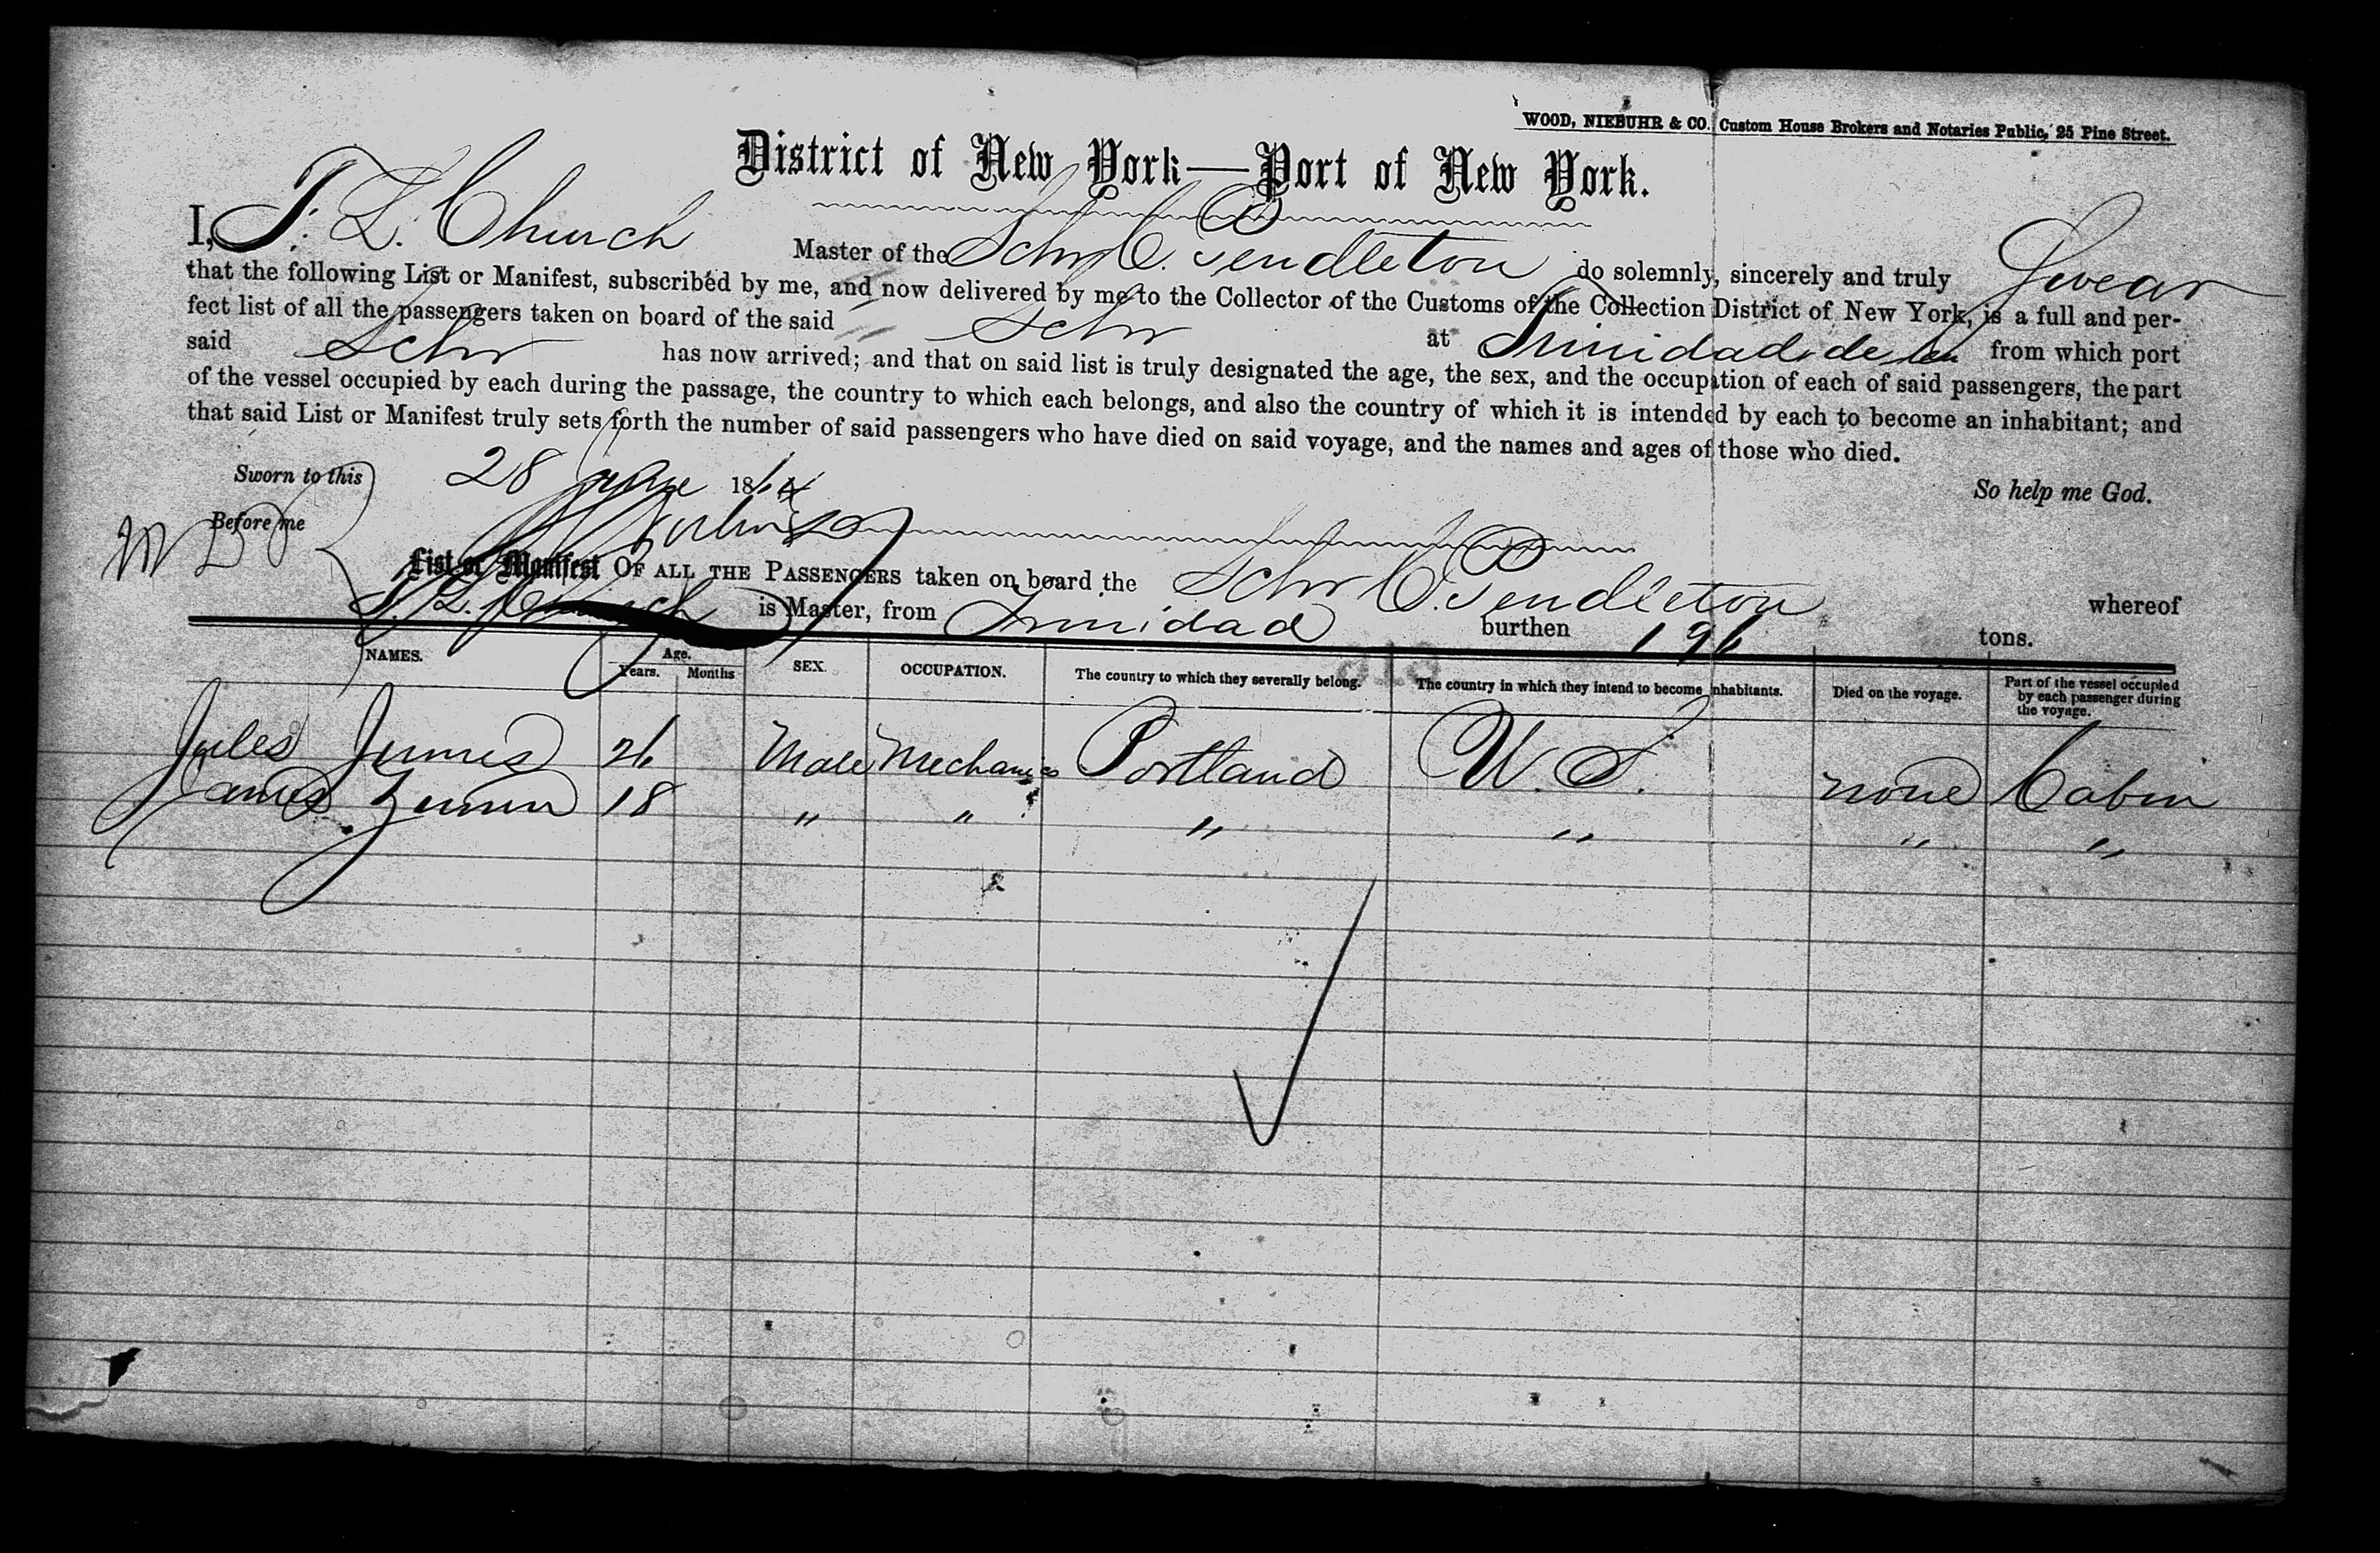 WOOD, NIEBUHR & CO. Custom House Brokers and Notaries Public, 25 Pine Street.
District of New York—Port of New York.
I, T. L. Church Master of the Schr C. Pendleton do solemnly, sincerely and truly Swear
that the following List or Manifest, subscribed by me, and now delivered by me to the Collector of the Customs of the Collection District of New York, is a full and per-
fect list of all the passengers taken on board of the said Schr at Trinidad de from which port
said Schr has now arrived; and that on said list is truly designated the age, the sex, and the occupation of each of said passengers, the part
of the vessel occupied by each during the passage, the country to which each belongs, and also the country of which it is intended by each to become an inhabitant; and
that said List or Manifest truly sets forth the number of said passengers who have died on said voyage, and the names and ages of those who died.
Sworn to this 28 186 So help me God.
Before me
List or Manifest OF ALL THE PASSENGERS taken on board the Schr C. Pendleton whereof
T. L. Church is Master, from Trinidad burthen 196 tons.
NAMES. Age. Years. Months SEX. OCCUPATION. The country to which they severally belong. The country in which they intend to become inhabitants. Died on the voyage. Part of the vessel occupied by each passenger during the voyage.
Jules 26 Male Mechanics Portland U.S. none Cabin
James 18 " " " " " "